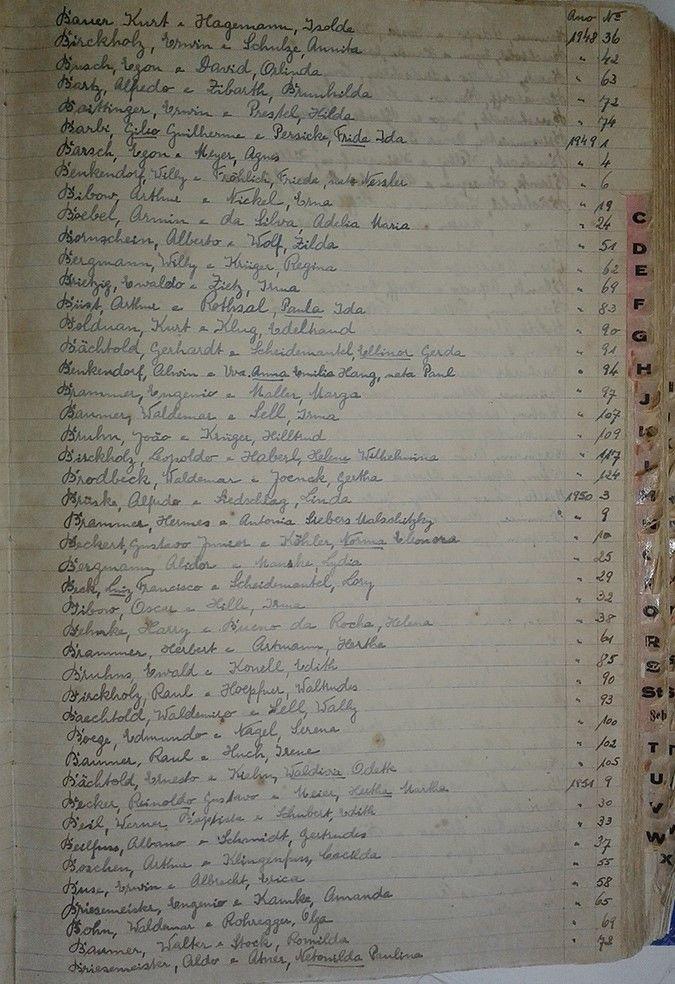 Ano Nº
Bauer Kurt e Hagemann, Isolde 1948 36
Birckholz, Erwin e Schulze, Annita " 42
Busch, Egon e David, Orlinda " 63
Bartz, Alfredo e Zibarth, Brunhilda " 72
Baittinger, Erwin e Prestel, Hilda " 74
Barbi, Gilio Guilherme e Persicke, Frida Ida 1949 1
Barsch, Egon e Meyer, Agnes " 4
Benkendorf, Willy e Fröhlich, Frieda, nata Nessler " 6
Bibow, Arthur e Nickel, Erna " 19
Boebel, Armin e da Silva, Adelia Maria " 24
Bornschein, Alberto e Wolf, Zilda " 51
Bergmann, Willy e Krüger, Regina " 62
Brietzig, Ewaldo e Zietz, Irma " 69
Büst, Arthur e Rothsal, Paula Ida " 83
Boldman, Kurt e Klug, Edeltraud " 90
Bächtold, Gerhardt e Scheidemantel, Ellinor Gerda " 91
Benkendorf, Alwin e Vva. Anna Emilia Hang, nata Paul " 94
Brammer, Eugenio e Maller, Marga " 97
Baumer, Waldemar e Sell, Irma " 107
Bruhn, João e Krüger, Hilltrud " 109
Birckholz, Leopoldo e Haberl, Helene Wilhelmina " 117
Brodbeck, Waldemar e Joenck, Gertha " 124
Brüske, Alfredo e Redschlag, Linda 1950 3
Brammer, Hermes e Antonia Siebers " 9
Beckert, Gustavo Junior e Köhler, Norma Eleonora " 10
Bergmann, Alidor e Manske, Lydia " 25
Beck, Luiz Francisco e Scheidemantel, Lory " 29
Bibow, Oscar e Hille, Irma " 32
Behnke, Harry e Bueno da Rocha, Helena " 38
Brammer, Herbert e Artmann, Hertha " 61
Bruhns, Ewald e Konell, Edith " 85
Birckholz, Raul e Hoepfner, Waltrudes " 90
Baechtold, Waldemiro e Sell, Wally " 93
Boege, Edmundo e Nagel, Serena " 100
Baumer, Raul e Huch, Irene " 102
Bächtold, Ernesto e Krehn, Waldiva Odete " 105
Becker, Reinoldo Gustavo e Meier, Hertha Martha 1951 9
Beil, Werner Baptista e Schubert, Edith " 30
Beilfuss, Albano e Schmidt, Gertrudes " 33
Boschen, Arthur e Klingenfuss, Cacilda " 37
Buse, Erwin e Albrecht, Erica " 55
Briesemeister, Eugenio e Kamke, Amanda " 58
Bohn, Waldemar e Rohregger, Olga " 65
Baumer, Walter e Stock, Romilda " 69
Briesemeister, Aldo e Atner, Netonilda Paulina " 72
C
D
E
F
G
H
J
K
L
M
N
O
R
S
St
Sch
T
U
V
W
X